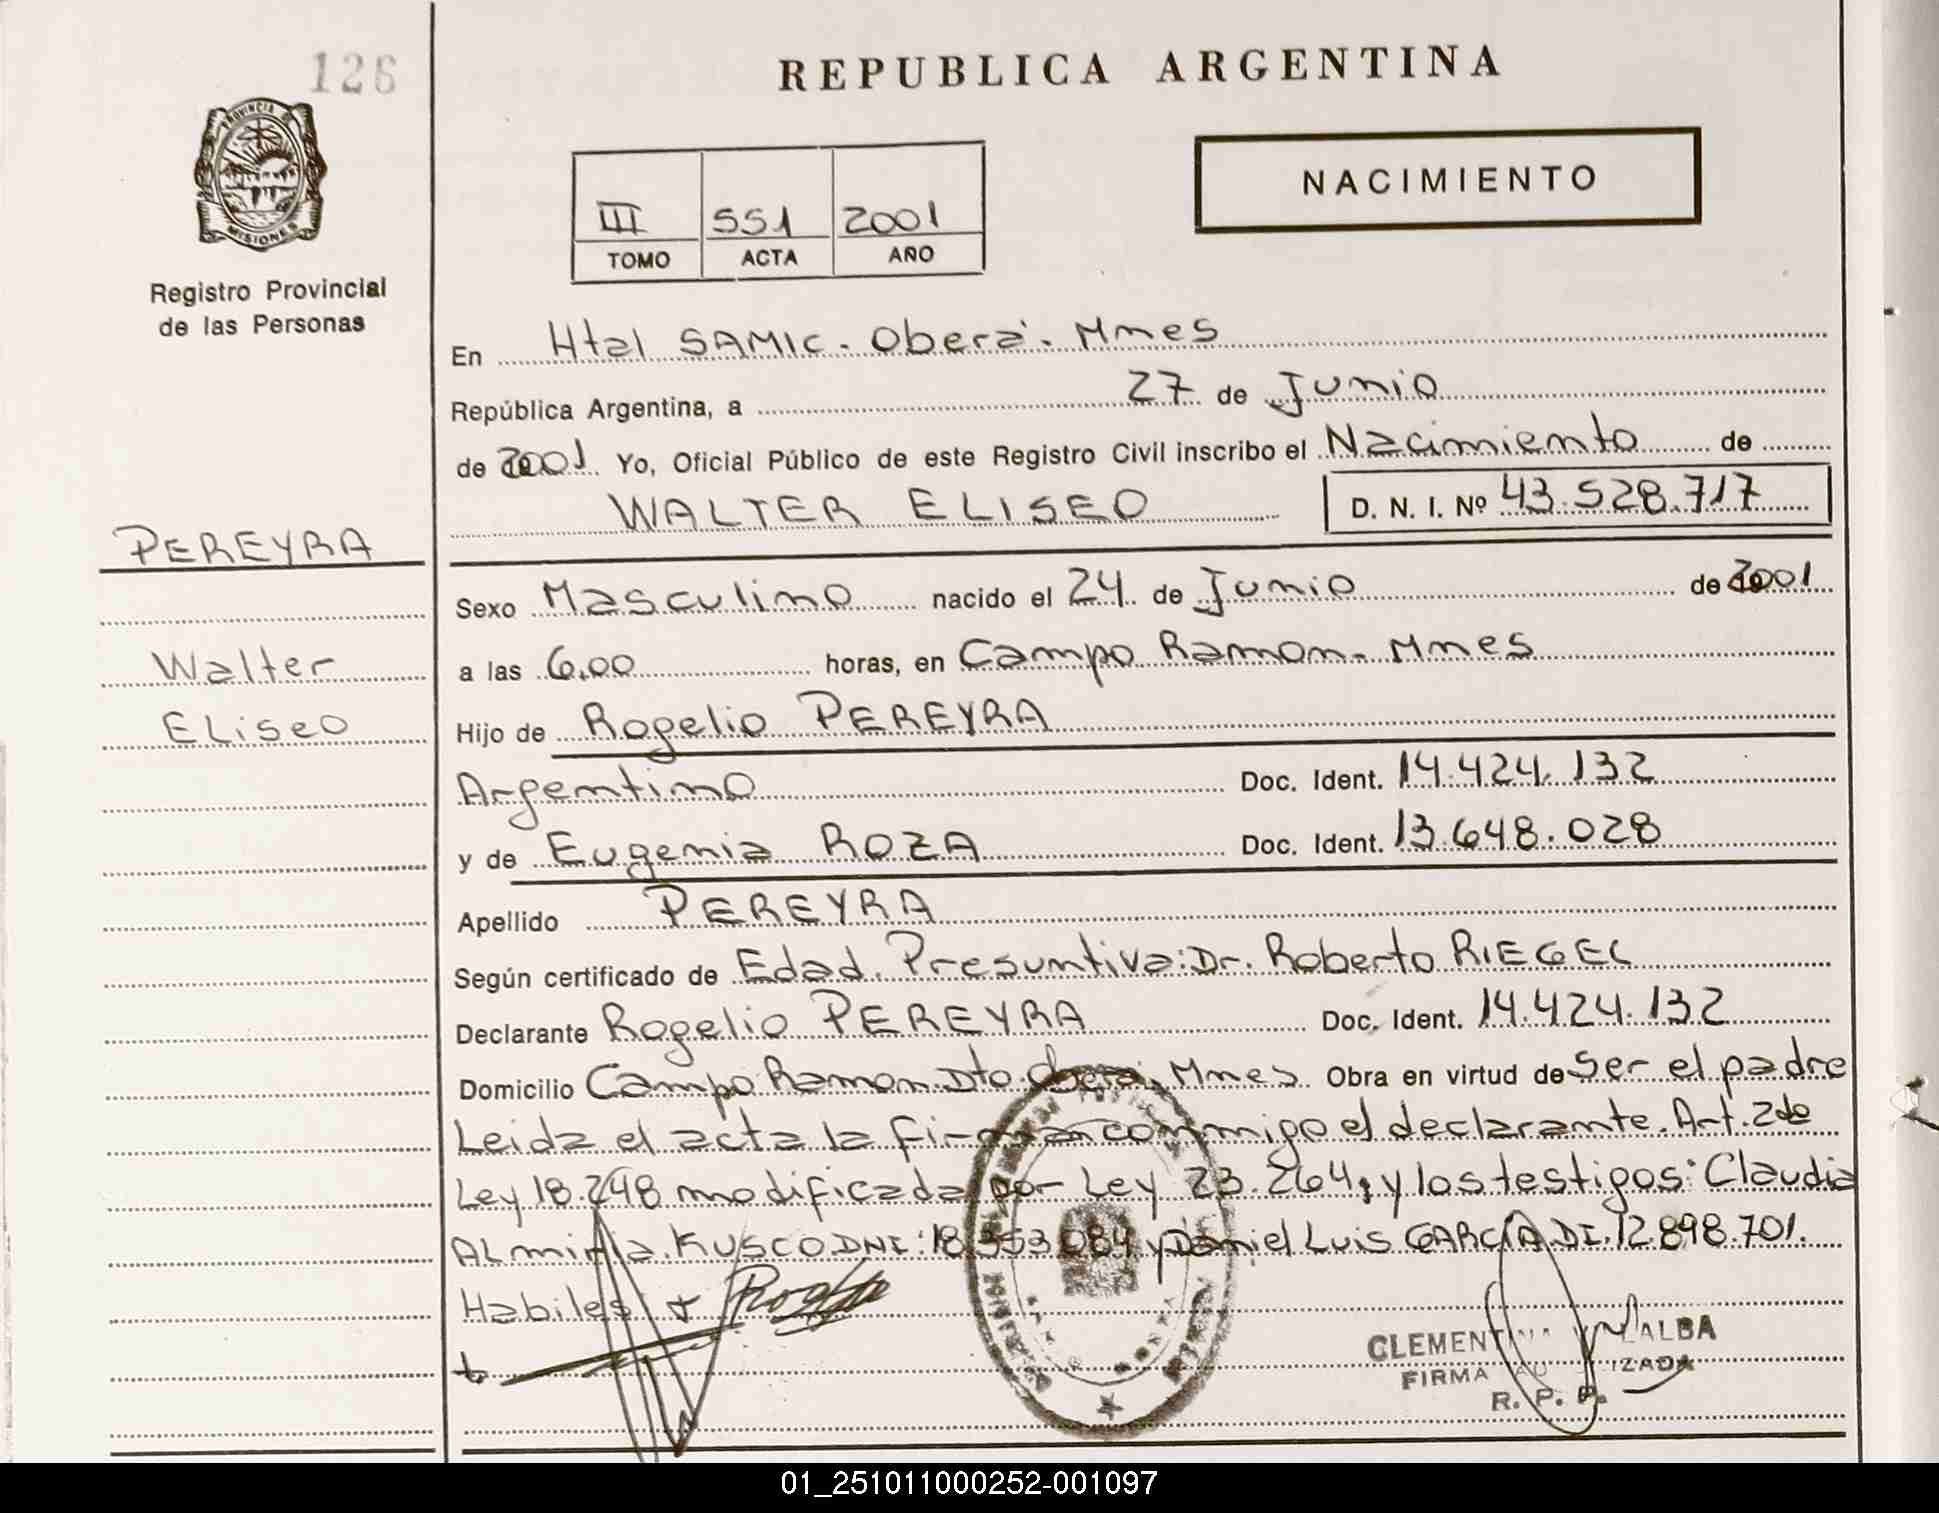 126
REPUBLICA ARGENTINA
PROVINCIA DE
MISIONES
NACIMIENTO
III 551 2001
TOMO ACTA AÑO
Registro Provincial
de las Personas
En Htal SAMIC. Oberá. Mnes
República Argentina, a 27 de Junio
de 2001 Yo, Oficial Público de este Registro Civil inscribo el Nacimiento de
WALTER ELISEO D. N. I. Nº 43.528.717
PEREYRA
Sexo Masculino nacido el 24 de Junio de 2001
Walter
a las 6,00 horas, en Campo Ramon. Mnes
ELiseo
Hijo de Rogelio PEREYRA
Argentino Doc. Ident. 14.424.132
y de Eugenia ROZA Doc. Ident. 13.648.028
Apellido PEREYRA
Según certificado de Edad Presuntiva: Dr. Roberto RIEGEL
Declarante Rogelio PEREYRA Doc. Ident. 14.424.132
Domicilio Campo Ramon Dto. Oberá, Mnes Obra en virtud de Ser el padre
Leida el acta la firman conmigo el declarante. Art. 2do
Ley 18.248 modificada por Ley 23.264, y los testigos: Claudia
ALmirla KUSCO DNI: 18.353.084 y Daniel Luis GARCIA DI. 12.898.701.
Habiles
FIRMA AUTORIZADA
R. P. P.
01_251011000252-001097